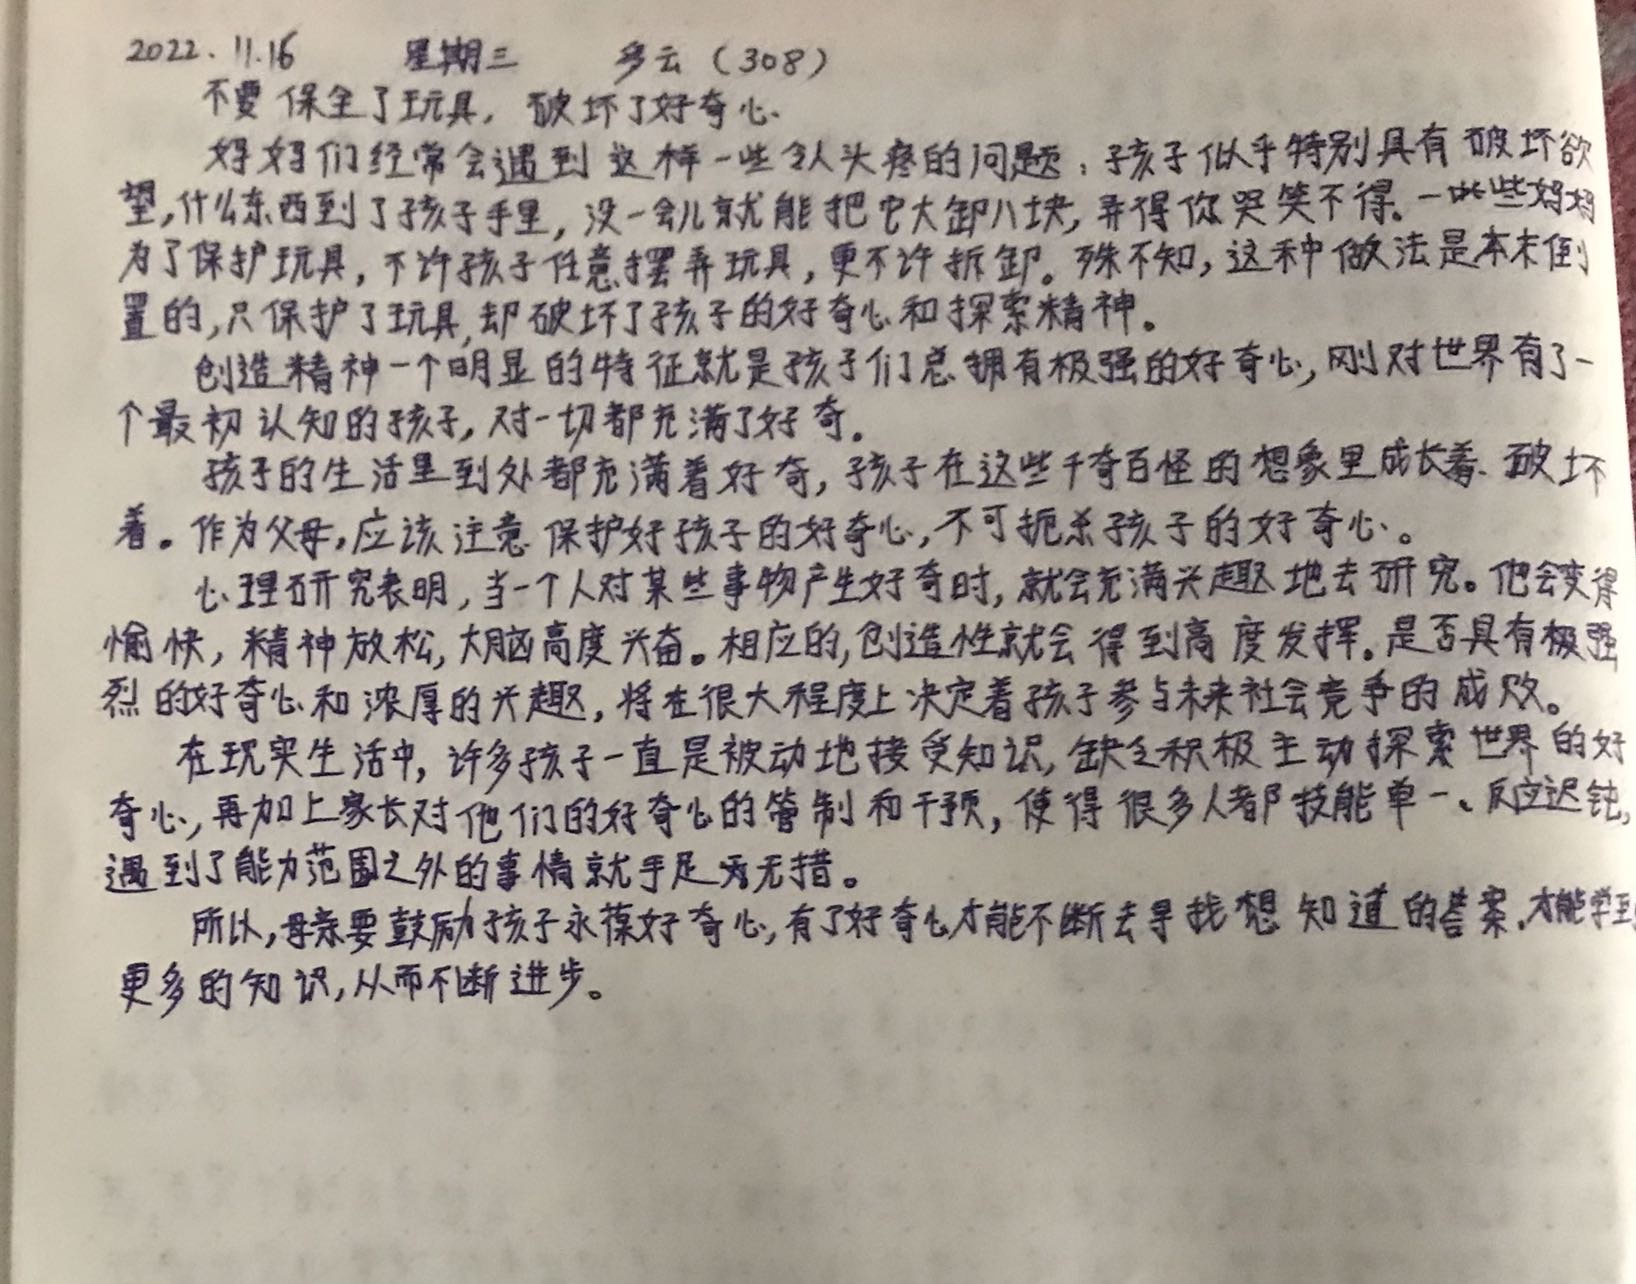 2022.11.16 星期三 多云（308）
不要保全了玩具，破坏了好奇心.
妈妈们经常会遇到这样一些令人头疼的问题：孩子似乎特别具有破坏欲
望，什么东西到了孩子手里，没一会儿就能把它大卸八块，弄得你哭笑不得。一些妈妈
为了保护玩具，不许孩子任意摆弄玩具，更不许拆卸。殊不知，这种做法是本末倒
置的，只保护了玩具，却破坏了孩子的好奇心和探索精神。
创造精神一个明显的特征就是孩子们总拥有极强的好奇心，刚对世界有了一
个最初认知的孩子，对一切都充满了好奇。
孩子的生活里到处都充满着好奇，孩子在这些千奇百怪的想象里成长着、破坏
着。作为父母，应该注意保护好孩子的好奇心，不可扼杀孩子的好奇心。
心理研究表明，当一个人对某些事物产生好奇时，就会充满兴趣地去研究。他会变得
愉快，精神放松，大脑高度兴奋。相应的，创造性就会得到高度发挥。是否具有极强
烈的好奇心和浓厚的兴趣，将在很大程度上决定着孩子参与未来社会竞争的成败。
在现实生活中，许多孩子一直是被动地接受知识，缺乏积极主动探索世界的好
奇心，再加上家长对他们的好奇心的管制和干预，使得很多人都技能单一、反应迟钝，
遇到了能力范围之外的事情就手足无措。
所以，母亲要鼓励孩子永葆好奇心，有了好奇心才能不断去寻找想知道的答案，才能学到
更多的知识，从而不断进步。